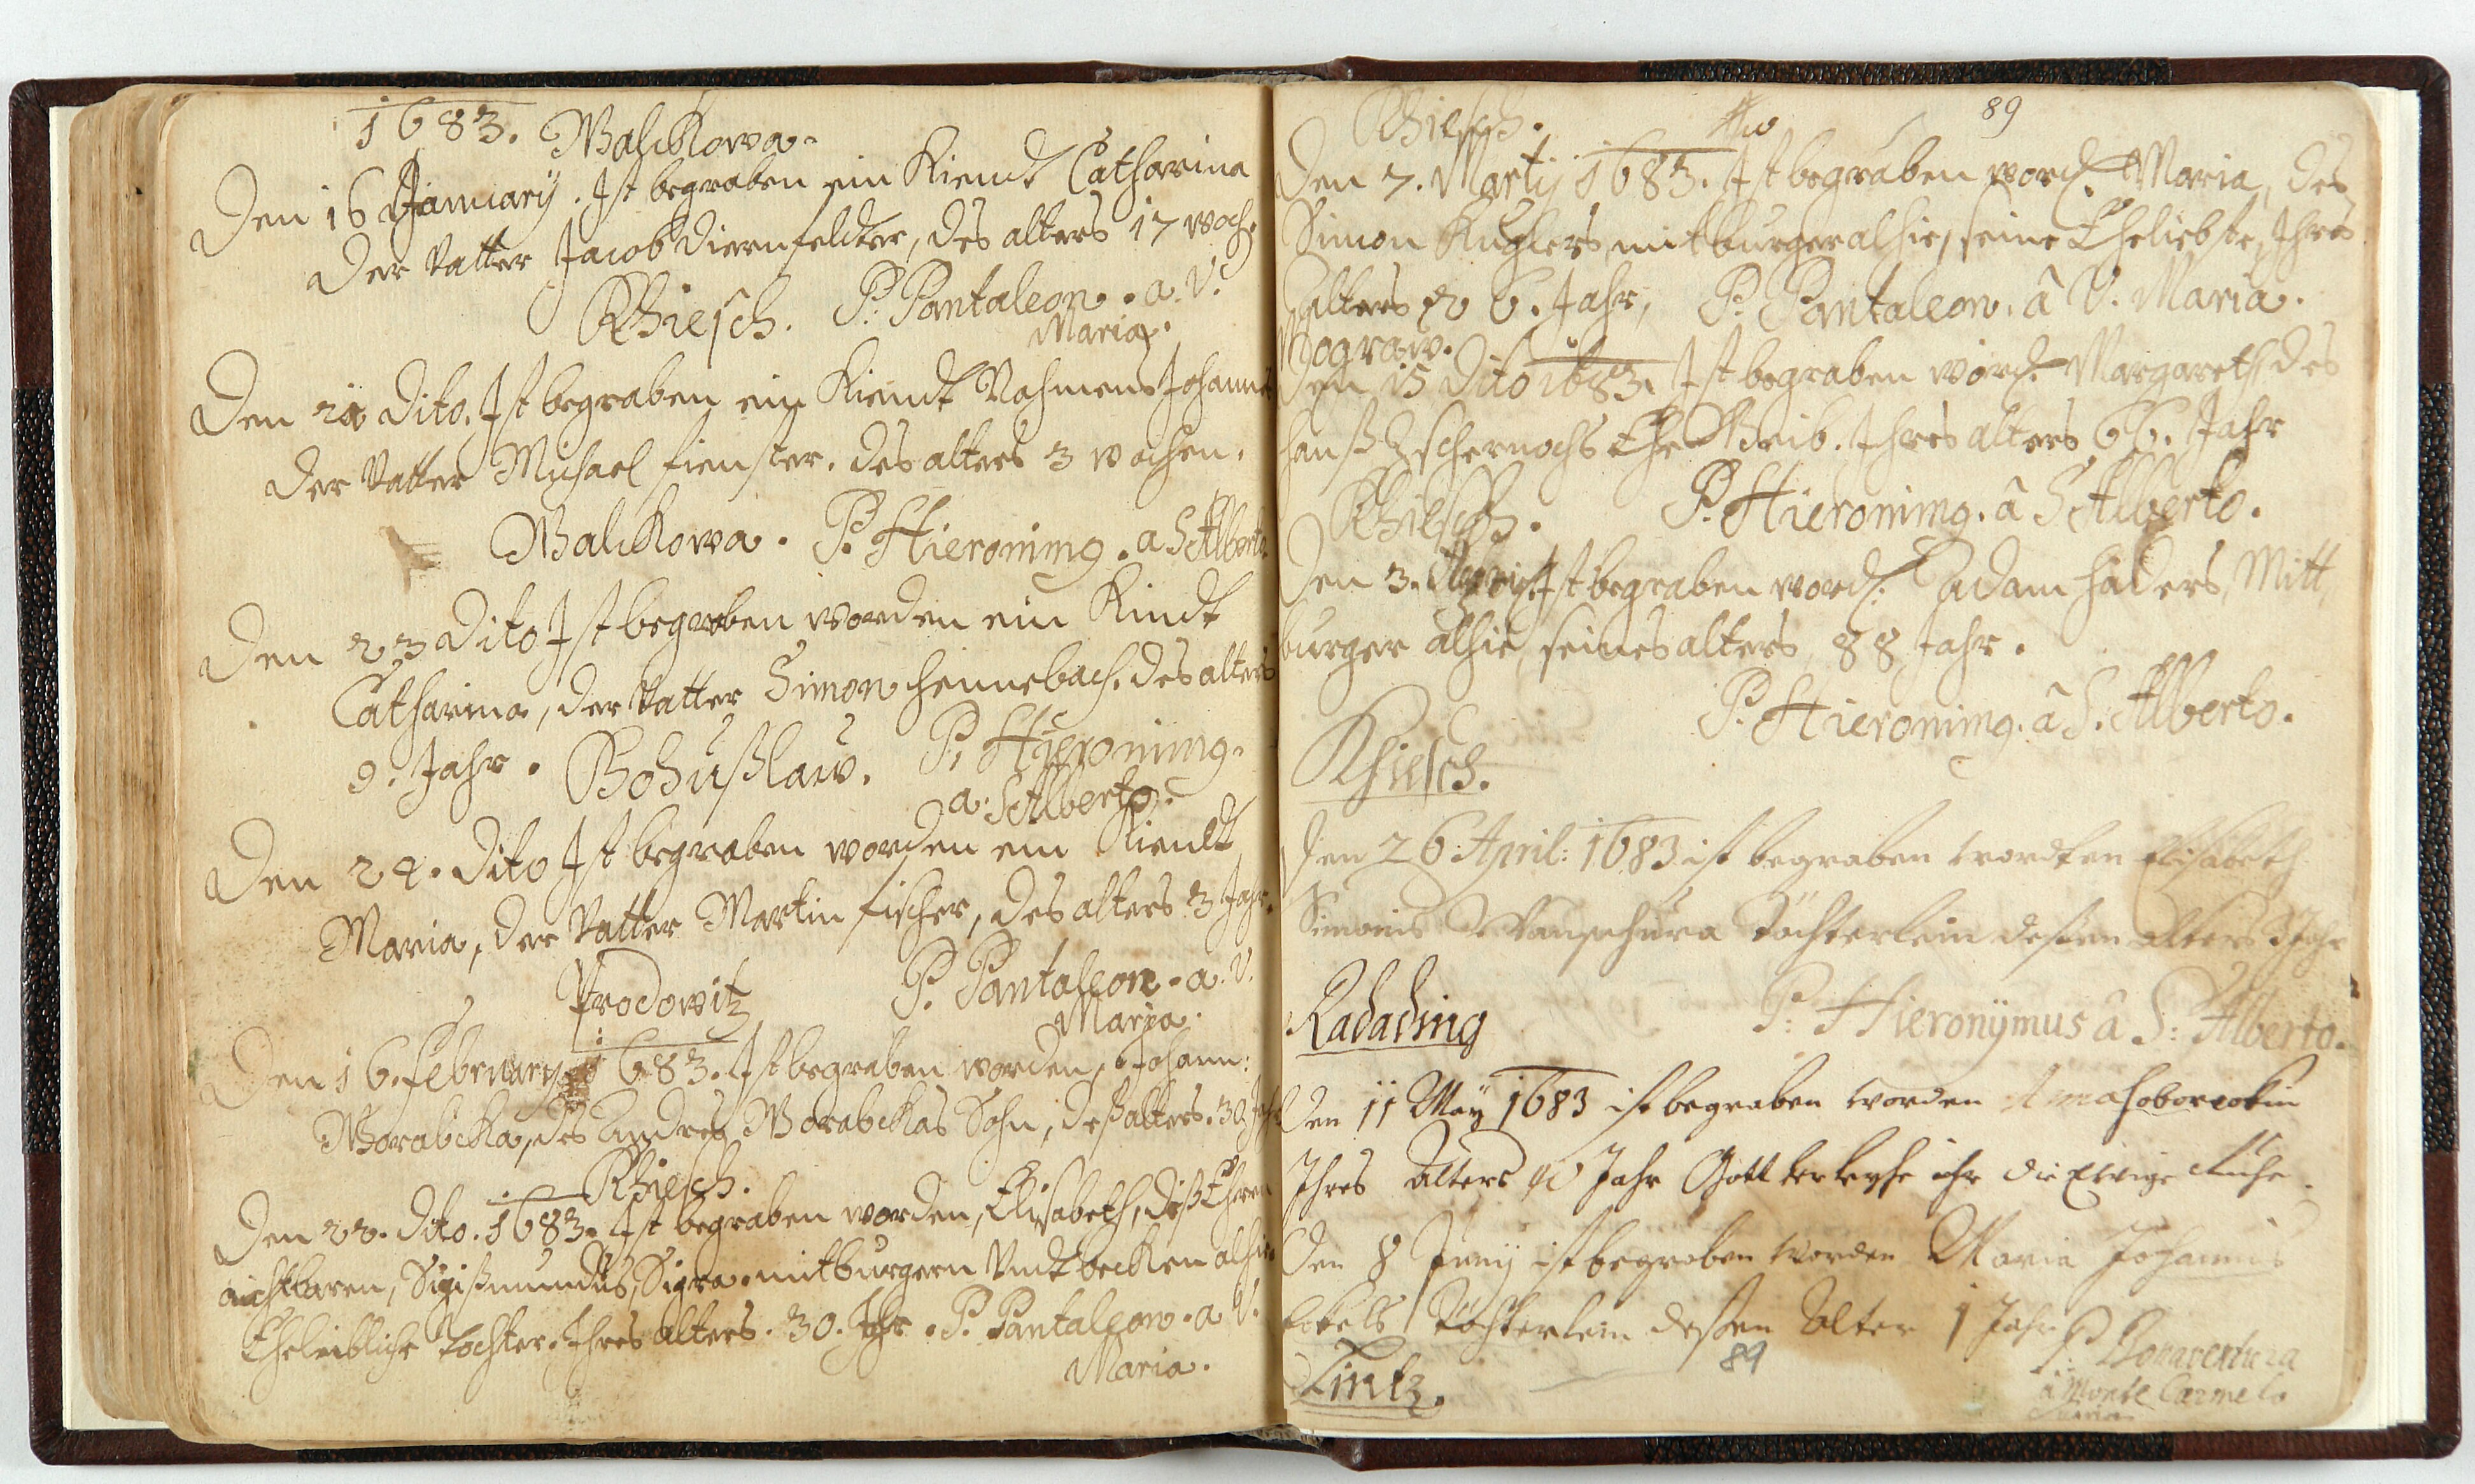 1683. Walikowa.
Den 16 January. Ist begraben ein Kiendt Catharina
der Vatter Jacob Diernfelder, des alters 17 woch.
Khiesch. P. Pantaleon. a. V.
Maria.
Den dito. Ist begraben ein Kiendt Nahmens Johannes
der Vatter Michael fienster. des alters 3 wochen.
Walikowa. P. Hieronimg. a S Alberto
Den 23 dito Ist begraben worden ein Kindt
Catharina, der Vatter Simon hennebach. des alters
9. Jahr. Bohußlaw. P. Hieronimg.
a. S Alberto.
Den 24. dito Ist begraben worden ein Kiendt
Maria, der Vatter Martin fischer, des alters 3 Jahr.
Prodowitz P. Pantaleon. a. V.
Maria.
Den 16. february 1683. Ist begraben worden, Johann:
Worabcka, des Andres Worabckas Sohn, deß alters. 30 Jahr
Khiesch.
Den 22. dito. 1683. Ist begraben worden, Elisabeth, deß Ehren
achtbaren, Sigißmundus, Sigra. mitburgern Vndt becken alhie.
Eheleibliche tochter. Ihres alters. 30. Jahr. P. Pantaleon. a V.
Maria.
Khiesch. 89
Den 7. Marty 1683. Ist begraben word. Maria, des
Simon Kuglers, mitburger alhie, seine Eheliebste, Ihres
alters Jahr, P. Pantaleon. â V. Maria.
Mograw.
Den 15 dito 1683. Ist begraben word. Margareth des
hanß Zschernochs Ehe Weib. Ihres alters 66. Jahr
Khiesch. P. Hieronimg. â S Alberto.
Den 3. April. Ist begraben word. Adam haders, Mitt,
burger alhie, seines alters, 88 Jahr.
P. Hieronimg. â S. Alberto.
Khiesch.
Den 26 April: 1683 ist begraben wordten Elisabeth
Simonis Wanschura töchterlein deßen alters Jahr
P: Hieronÿmus â S: Alberto.
Radading
Den 11 Maÿ 1683 ist begraben worden
Ihres Alters 40 Jahr Gott verleyhe ihr die Ewige Ruhe.
Den 8 Junij ist begraben worden Maria Johannis
töchterlein deßen Alter 1 Jahr P: Bonaventura
89
â Monte Carmelo
Lintz.